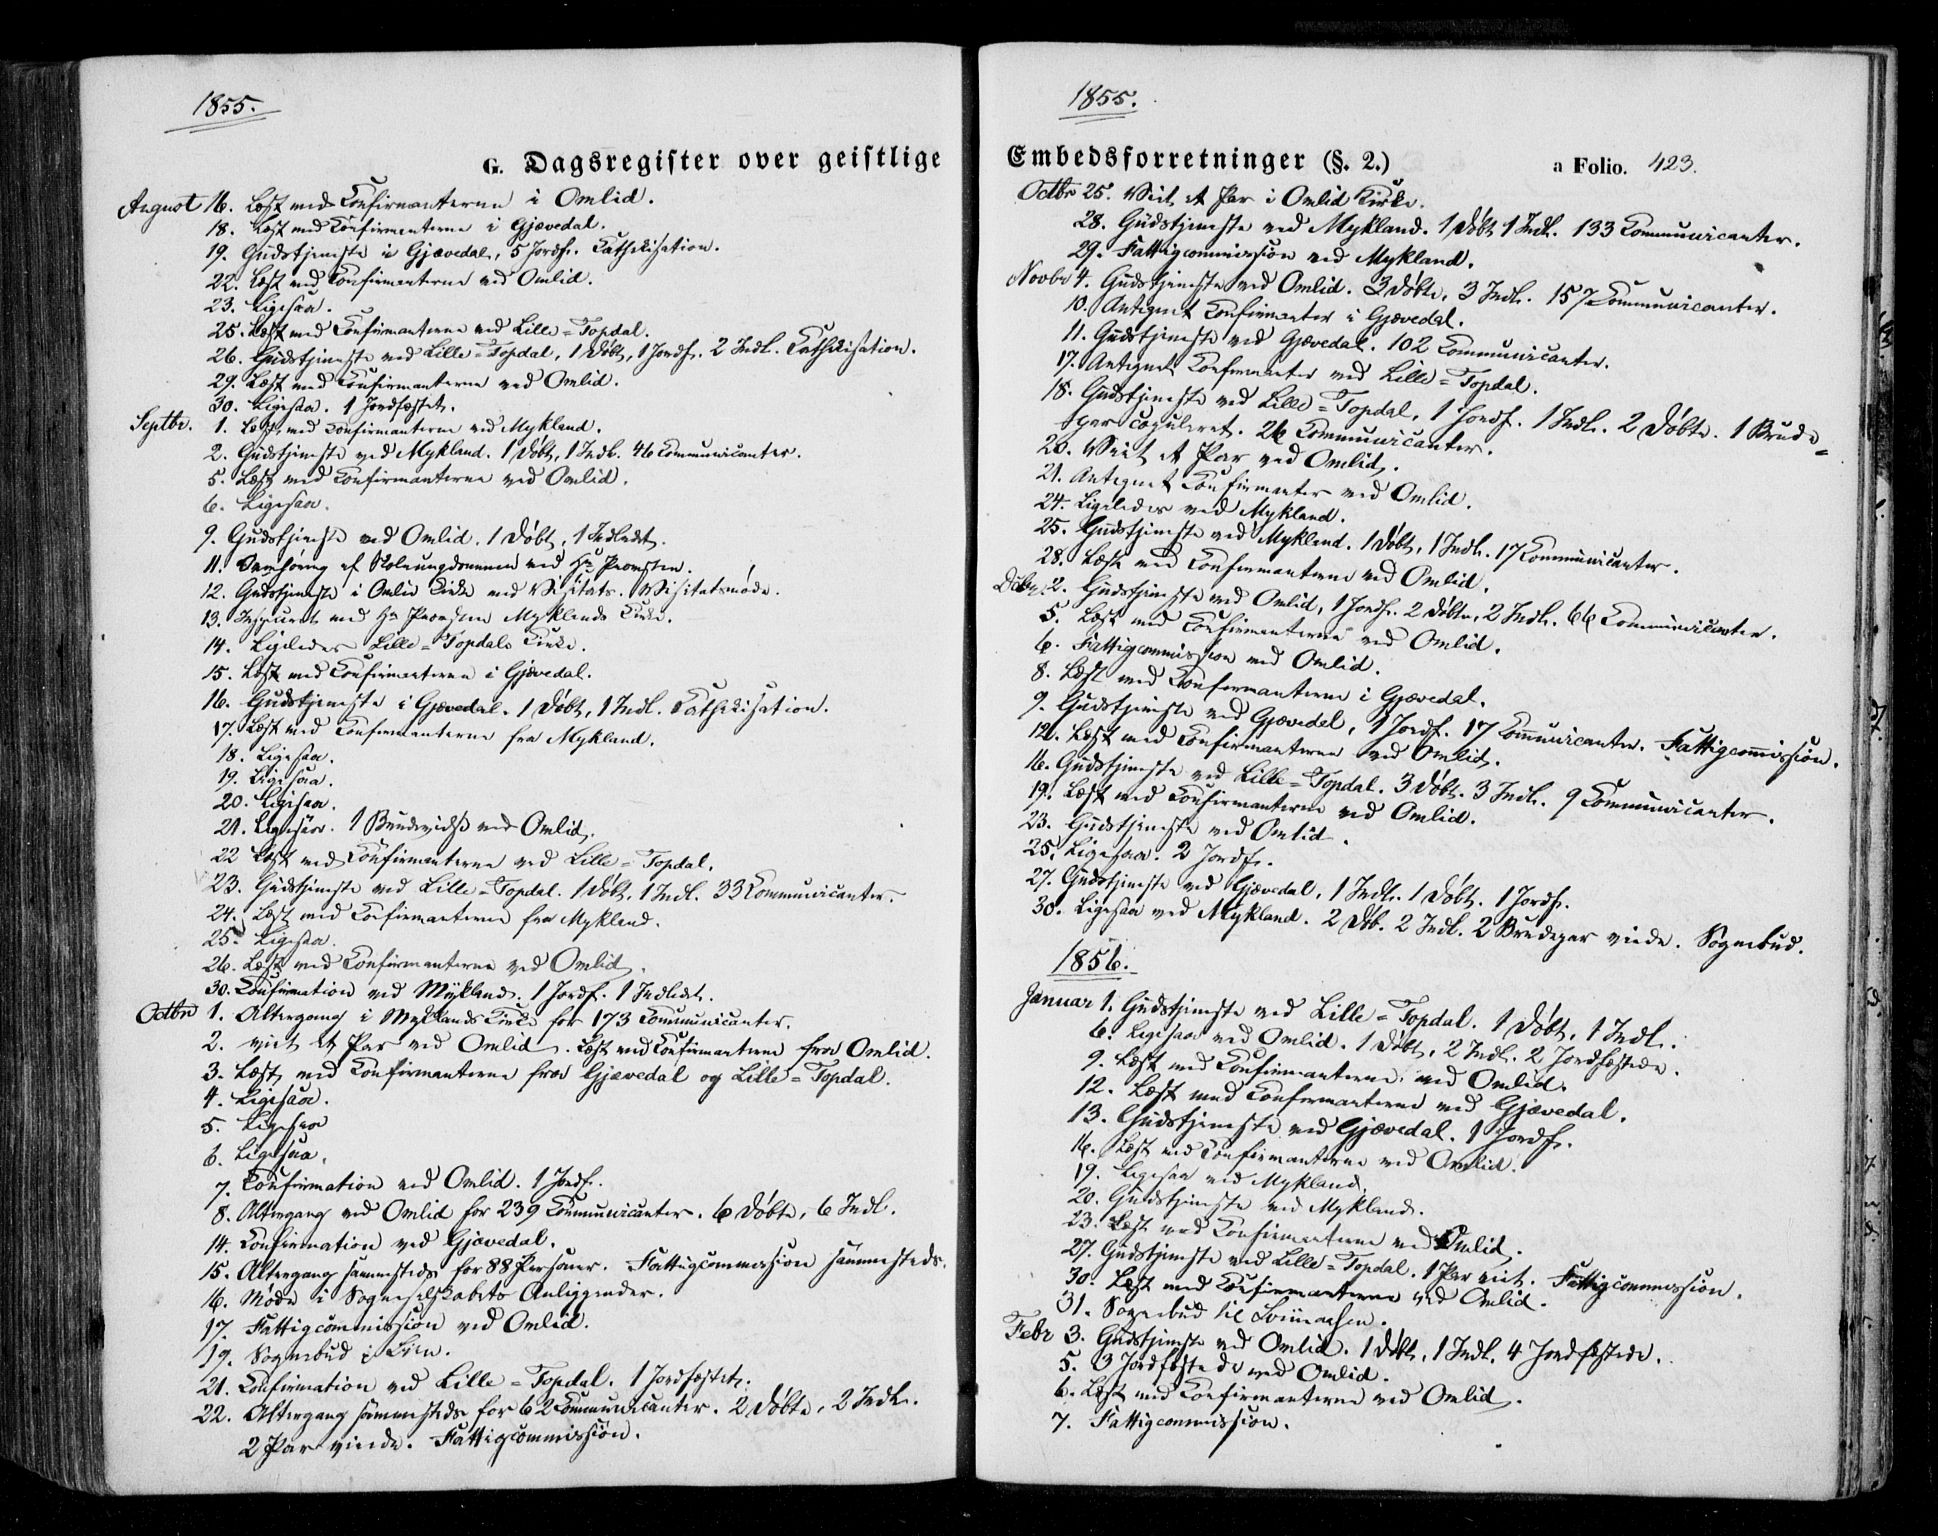 1855.
G. Dagsregister over geistlige
August 16. Læst med Confirmanterne i Omlid.
18. Læst med Confirmanterne i Gjøvedal.
19. Gudstjeneste i Gjøvedal, 5 Jordf. Cathekisation.
22. Læst med Confirmanterne ved Omlid.
23. Ligesaa.
25. Læst med Confirmanterne ved Lille-Topdal.
26. Gudstjeneste ved Lille-Topdal, 1 Døbt, 1 Jordf. 2 Indl. Cathekisation.
29. Læst med Confirmanterne ved Omlid.
30. Ligesaa. 1 Jordfæstet.
Septbr. 1. Læst med Confirmanterne ved Mykland.
2. Gudstjeneste ved Mykland. 1 Døbt, 1 Indl. 46 Communicanter.
5. Læst med Confirmanterne ved Omlid.
6. Ligesaa.
9. Gudstjeneste ved Omlid. 1 Døbt, 1 Indledt.
11. Overhøring af Skoleungdommen ved Hr Provsten.
12. Gudstjeneste i Omlid Kirke med Visitats. Visitatsmøde.
13. Inspiceret med Hr Provsten Myklands Kirke.
14. Ligeledes Lille-Topdals Kirke.
15. Læst med Confirmanterne i Gjøvedal.
16. Gudstjeneste i Gjøvedal. 1 Døbt, 1 Indl. Cathekisation.
17. Læst med Confirmanterne fra Mykland.
18. Ligesaa.
19. Ligesaa.
20. Ligesaa.
21. Ligesaa. 1 Brudevielse ved Omlid.
22 Læst med Confirmanterne ved Lille-Topdal.
23. Gudstjeneste ved Lille-Topdal. 1 Døbt, 1 Indl. 33 Communicanter.
24. Læst med Confirmanterne fra Mykland.
25. Ligesaa.
26. Læst med Confirmanterne ved Omlid.
30. Confirmation ved Mykland. 1 Jordf. 1 Indledt.
Octbr 1. Altergang i Myklands Kirke for 173 Communicanter.
2. viet et Par ved Omlid. Læst med Confirmanterne fra Omlid.
3. Læst med Confirmanterne fra Gjøvedal og Lille-Topdal.
4. Ligesaa.
5. Ligesaa
6. Ligesaa.
7. Confirmation ved Omlid. 1 Jordf.
8. Altergang ved Omlid for 239 Communicanter. 6 Døbte, 6 Indl.
14. Confirmation ved Gjøvedal.
15. Altergang sammesteds for 88 Personer. Fattigcommission sammesteds.
16. Møde i Sogneselskabets Anliggender.
17. Fattigcommission ved Omlid.
19. Sognebud i Lien.
21. Confirmation ved Lille-Topdal. 1 Jordfæstet.
22. Altergang sammesteds for 62 Communicanter. 2 Døbte, 2 Indl.
2 Par viede. Fattigcommission.
1855.
Embedsforretninger (§. 2.)
a Folio. 423.
Octbr 25. Viet et Par i Omlid Kirke.
28. Gudstjeneste ved Mykland. 1 Døbt 1 Indl. 133 Communicanter.
29. Fattigcommission ved Mykland.
Novbr 4. Gudstjeneste ved Omlid. 3 Døbte, 3 Indl. 157 Communicanter.
10. Antegnet Confirmanter i Gjøvedal.
11. Gudstjeneste ved Gjøvedal. 102 Communicanter.
17. Antegnet Confirmanter ved Lille-Topdal.
18. Gudstjeneste ved Lille-Topdal, 1 Jordf. 1 Indl. 2 Døbte. 1 Brude=
par copuleret. 26 Communicanter.
20. Viet et Par ved Omlid.
21. Antegnet Confirmanter ved Omlid.
24. Ligeledes ved Mykland.
25. Gudstjeneste ved Mykland. 1 Døbt, 1 Indl. 17 Communicanter.
28. Læst med Confirmanterne ved Omlid.
Decbr 2. Gudstjeneste ved Omlid, 1 Jordf. 2 Døbte, 2 Indl. 66 Communicanter.
5. Læst med Confirmanterne ved Omlid.
6. Fattigcommission ved Omlid.
8. Læst med Confirmanterne i Gjøvedal.
9. Gudstjeneste ved Gjøvedal, 1 Jordf. 17 Communicanter. Fattigcommission.
12. Læst med Confirmanterne ved Omlid.
16. Gudstjeneste ved Lille-Topdal. 3 Døbt. 3 Indl. 9 Communicanter.
19. Læst med Confirmanterne ved Omlid.
23. Gudstjeneste ved Omlid.
25. Ligesaa. 2 Jordf.
27. Gudstjeneste ved Gjøvedal, 1 Indl. 1 Døbt. 1 Jordf.
30. Ligesaa ved Mykland. 2 Døb. 2 Indl. 2 Brudepar viede. Sognebud.
1856.
Januar 1. Gudstjeneste ved Lille-Topdal. 1 Døbt, 1 Indl.
6. Ligesaa ved Omlid. 1 Døbt, 2 Indl. 2 Jordfæstede.
9. Læst med Confirmanterne ved Omlid.
12. Læst med Confirmanterne ved Gjøvedal.
13. Gudstjeneste ved Gjøvedal. 1 Jordf.
16. Læst med Confirmanterne ved Omlid.
19. Ligesaa ved Mykland.
20. Gudstjeneste ved Mykland.
23. Læst med Confirmanterne ved Omlid.
27. Gudstjeneste ved Lille-Topdal. 1 Par viet. Fattigcommission.
30. Læst med Confirmanterne ved Omlid.
31. Sognebud til
Febr 3. Gudstjeneste ved Omlid. 1 Døbt, 1 Indl. 4 Jordfæstede.
5. 3 Jordfæstede ved Omlid.
6. Læst med Confirmanterne ved Omlid.
7. Fattigcommission.